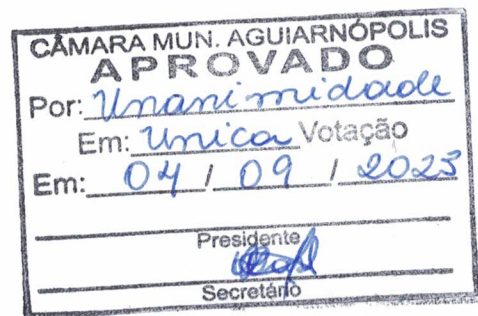 CÂMARA MUN. AGUIARNÓPOLIS
APROVADO
Por: Unanimidade
Em: Unica Votação
Em: 04 / 09 / 2023
Presidente
Secretário